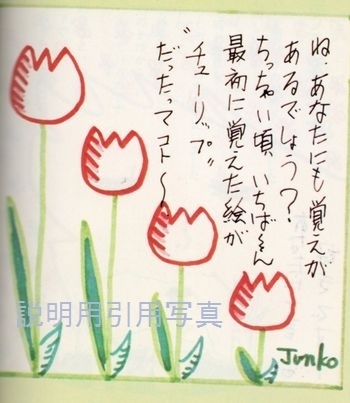 ね、あなたにも覚えが
あるでしょう?
ちっちゃい頃、いちばん
最初に覚えた絵が
“チューリップ”
だったってコト〜
Junko
説明用引用写真